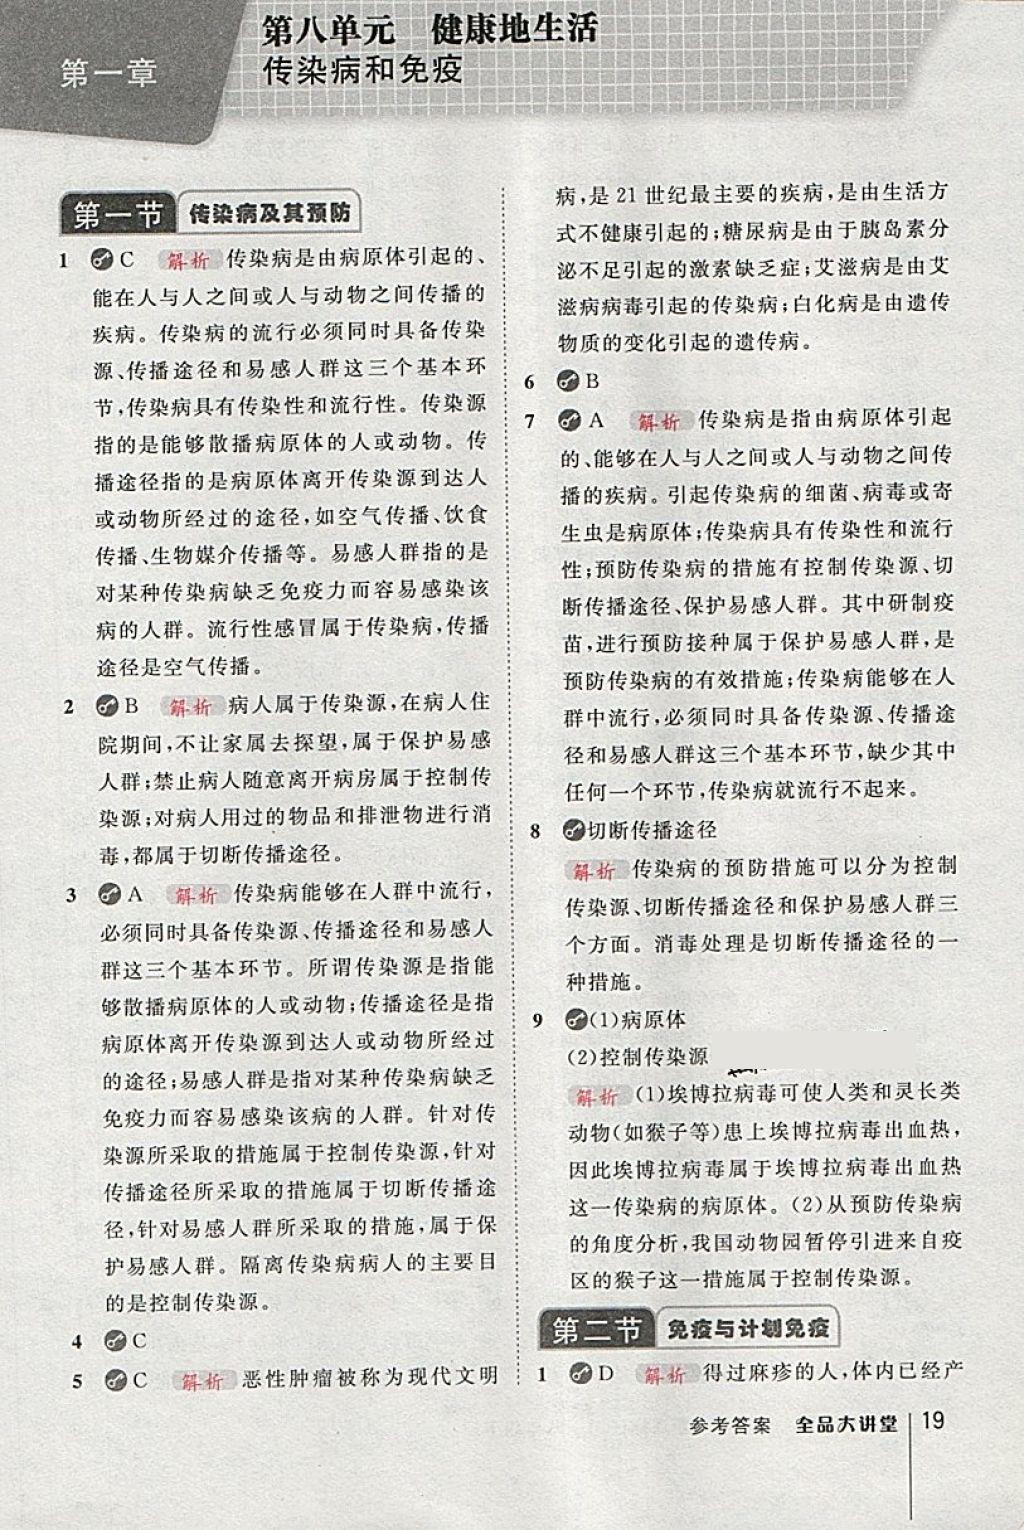 第八单元 健康地生活
第一章 传染病和免疫
第一节 传染病及其预防
1 C 解析 传染病是由病原体引起的、
能在人与人之间或人与动物之间传播的
疾病。传染病的流行必须同时具备传染
源、传播途径和易感人群这三个基本环
节,传染病具有传染性和流行性。传染源
指的是能够散播病原体的人或动物。传
播途径指的是病原体离开传染源到达人
或动物所经过的途径,如空气传播、饮食
传播、生物媒介传播等。易感人群指的是
对某种传染病缺乏免疫力而容易感染该
病的人群。流行性感冒属于传染病,传播
途径是空气传播。
2 B 解析 病人属于传染源,在病人住
院期间,不让家属去探望,属于保护易感
人群;禁止病人随意离开病房属于控制传
染源;对病人用过的物品和排泄物进行消
毒,都属于切断传播途径。
3 A 解析 传染病能够在人群中流行,
必须同时具备传染源、传播途径和易感人
群这三个基本环节。所谓传染源是指能
够散播病原体的人或动物;传播途径是指
病原体离开传染源到达人或动物所经过
的途径;易感人群是指对某种传染病缺乏
免疫力而容易感染该病的人群。针对传
染源所采取的措施属于控制传染源,针对
传播途径所采取的措施属于切断传播途
径,针对易感人群所采取的措施,属于保
护易感人群。隔离传染病病人的主要目
的是控制传染源。
4 C
5 C 解析 恶性肿瘤被称为现代文明
病,是 21 世纪最主要的疾病,是由生活方
式不健康引起的;糖尿病是由于胰岛素分
泌不足引起的激素缺乏症;艾滋病是由艾
滋病病毒引起的传染病;白化病是由遗传
物质的变化引起的遗传病。
6 B
7 A 解析 传染病是指由病原体引起
的、能够在人与人之间或人与动物之间传
播的疾病。引起传染病的细菌、病毒或寄
生虫是病原体;传染病具有传染性和流行
性;预防传染病的措施有控制传染源、切
断传播途径、保护易感人群。其中研制疫
苗,进行预防接种属于保护易感人群,是
预防传染病的有效措施;传染病能够在人
群中流行,必须同时具备传染源、传播途
径和易感人群这三个基本环节,缺少其中
任何一个环节,传染病就流行不起来。
8 切断传播途径
解析 传染病的预防措施可以分为控制
传染源、切断传播途径和保护易感人群三
个方面。消毒处理是切断传播途径的一
种措施。
9 (1)病原体
(2)控制传染源
解析 (1)埃博拉病毒可使人类和灵长类
动物(如猴子等)患上埃博拉病毒出血热,
因此埃博拉病毒属于埃博拉病毒出血热
这一传染病的病原体。(2)从预防传染病
的角度分析,我国动物园暂停引进来自疫
区的猴子这一措施属于控制传染源。
第二节 免疫与计划免疫
1 D 解析 得过麻疹的人,体内已经产
参考答案 全品大讲堂 19